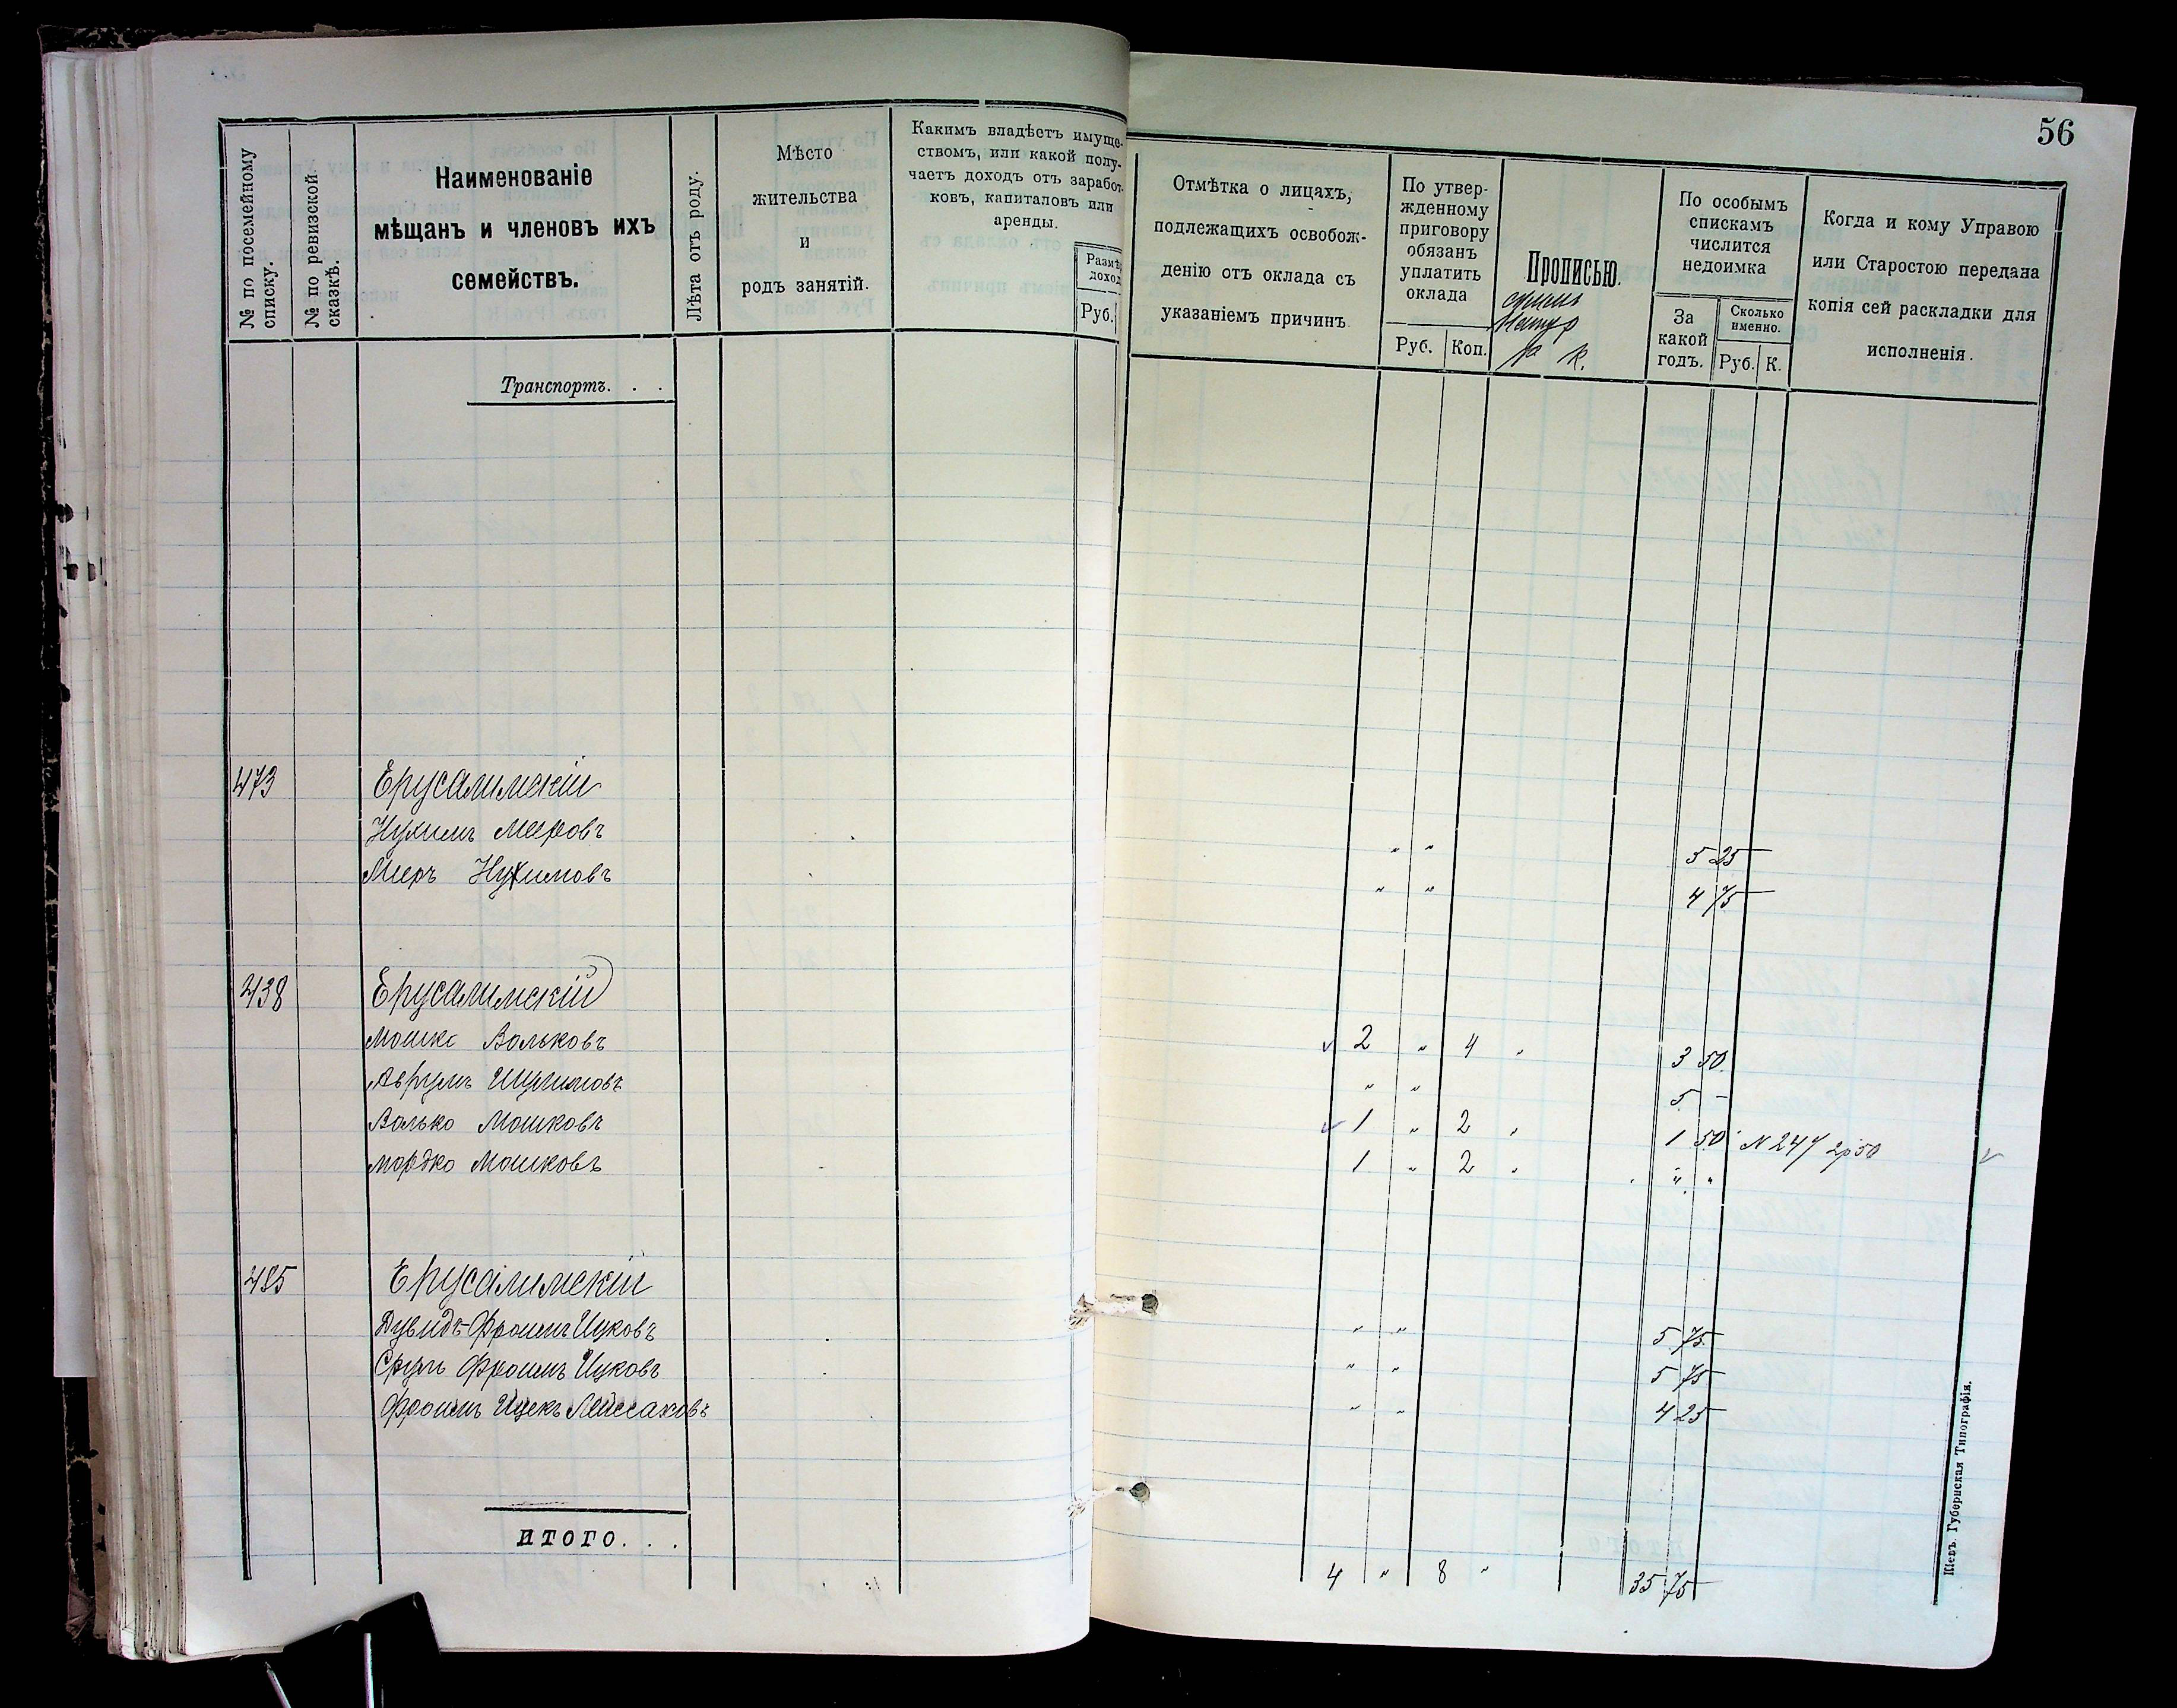 56
№ по посемейному
списку.
№ по ревизской
сказкѣ.
Наименованіе
мѣщанъ и членовъ ихъ
семействъ.
Лѣта отъ роду.
Мѣсто
жительства
и
родъ занятій.
Какимъ владѣетъ имуще-
ствомъ, или какой полу-
чаетъ доходъ отъ заработ-
ковъ, капиталовъ или
аренды.
Размѣ
доход
Руб.
Отмѣтка о лицахъ,
подлежащихъ освобож-
денію отъ оклада съ
указаніемъ причинъ
По утвер-
жденному
приговору
обязанъ
уплатить
оклада
Руб. Коп.
Прописью.
р к.
По особымъ
спискамъ
числится
недоимка
За
какой
годъ.
Сколько
именно.
Руб. К.
Когда и кому Управою
или Старостою передана
копія сей раскладки для
исполненія.
Транспортъ. . .
473 Ерусалимскій
Нухимъ Меировъ " " 5 25
Меиръ Нухимовъ " " 4 75
438 Ерусалимскій
Мошко Вольковъ 2 " 4 " 3 50
Аврумъ " " 5 -
Волько Мошковъ 1 " 2 " 1 50 N 247 2р50
Мордко Мошковъ 1 " 2 " " "
485 Ерусалимскій
Дувидъ-Фроимъ Ицковъ " " 5 75
Срулъ Фроимъ Ицковъ " " 5 75
Фроимъ Ицекъ " " 4 25
ИТОГО. . .
4 " 8 " 35 75
Кіевъ. Губернская Типографія.